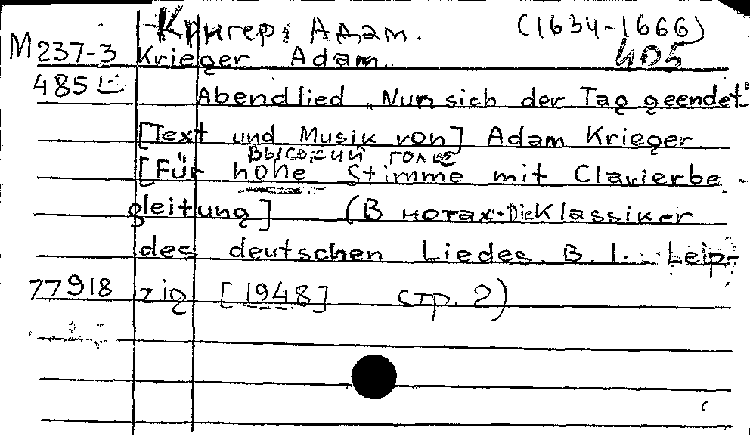 Кригер, Адам. (1634-1666)
М 237-3 Krieger Adam. 405
485
Abendlied „Nun sich der Tag geendet"
[Text und Musik von] Adam Krieger
высокий голос
[Für hohe Stimme mit Clavierbe-
gleitung] (В нотах. Die Klassiker
des deutschen Liedes. B. I. Leip-
77918 zig [1948] стр. 2)